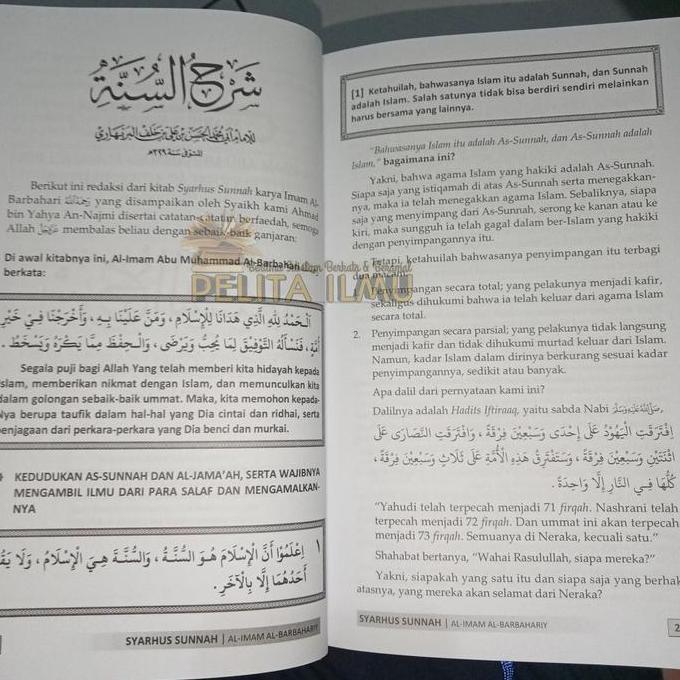 شَرْحُ السُّنَّةِ
للإمام أبي محمد الحسن بن علي بن خلف البربهاري
المتوفى سنة ٣٢٩هـ
Berikut ini redaksi dari kitab Syarhus Sunnah karya Imam Al-
Barbahari yang disampaikan oleh Syaikh kami Ahmad
bin Yahya An-Najmi disertai catatan-catatan berfaedah, semoga
Allah membalas beliau dengan sebaik-baik ganjaran:
Di awal kitabnya ini, Al-Imam Abu Muhammad Al-Barbahari
berkata:
اَلْحَمْدُ لِلَّهِ الَّذِي هَدَانَا لِلْإِسْلَامِ، وَمَنَّ عَلَيْنَا بِهِ، وَأَخْرَجَنَا فِي خَيْرِ
أُمَّةٍ، فَنَسْأَلُهُ التَّوْفِيْقَ لِمَا يُحِبُّ وَيَرْضَى، وَالْحِفْظَ مِمَّا يَكْرَهُ وَيَسْخَطُ.
Segala puji bagi Allah Yang telah memberi kita hidayah kepada
Islam, memberikan nikmat dengan Islam, dan memunculkan kita
dalam golongan sebaik-baik ummat. Maka, kita memohon kepada-
Nya berupa taufik dalam hal-hal yang Dia cintai dan ridhai, serta
penjagaan dari perkara-perkara yang Dia benci dan murkai.
KEDUDUKAN AS-SUNNAH DAN AL-JAMA'AH, SERTA WAJIBNYA
MENGAMBIL ILMU DARI PARA SALAF DAN MENGAMALKAN-
NYA
١ اِعْلَمُوْا أَنَّ الْإِسْلَامَ هُوَ السُّنَّةُ، وَالسُّنَّةَ هِيَ الْإِسْلَامُ، وَلَا يَقُ
أَحَدُهُمَا إِلَّا بِالْآخَرِ.
SYARHUS SUNNAH | AL-IMAM AL-BARBAHARIY
[1] Ketahuilah, bahwasanya Islam itu adalah Sunnah, dan Sunnah
adalah Islam. Salah satunya tidak bisa berdiri sendiri melainkan
harus bersama yang lainnya.
"Bahwasanya Islam itu adalah As-Sunnah, dan As-Sunnah adalah
Islam," bagaimana ini?
Yakni, bahwa agama Islam yang hakiki adalah As-Sunnah.
Siapa saja yang istiqamah di atas As-Sunnah serta menegakkan-
nya, maka ia telah menegakkan agama Islam. Sebaliknya, siapa
saja yang menyimpang dari As-Sunnah, serong ke kanan atau ke
kiri, maka sungguh ia telah gagal dalam ber-Islam yang hakiki
dengan penyimpangannya itu.
Tetapi, ketahuilah bahwasanya penyimpangan itu terbagi
dua macam:
Penyimpangan secara total; yang pelakunya menjadi kafir,
sekaligus dihukumi bahwa ia telah keluar dari agama Islam
secara total.
2. Penyimpangan secara parsial; yang pelakunya tidak langsung
menjadi kafir dan tidak dihukumi murtad keluar dari Islam.
Namun, kadar Islam dalam dirinya berkurang sesuai kadar
penyimpangannya, sedikit atau banyak.
Apa dalil dari pernyataan kami ini?
Dalilnya adalah Hadits Iftiraaq, yaitu sabda Nabi ﷺ,
اِفْتَرَقَتِ الْيَهُوْدُ عَلَى إِحْدَى وَسَبْعِيْنَ فِرْقَةً، وَافْتَرَقَتِ النَّصَارَى عَلَى
اثْنَتَيْنِ وَسَبْعِيْنَ فِرْقَةً، وَسَتَفْتَرِقُ هَذِهِ الْأُمَّةُ عَلَى ثَلَاثٍ وَسَبْعِيْنَ فِرْقَةً،
كُلُّهَا فِي النَّارِ إِلَّا وَاحِدَةً.
"Yahudi telah terpecah menjadi 71 firqah. Nashrani telah
terpecah menjadi 72 firqah. Dan ummat ini akan terpecah
menjadi 73 firqah. Semuanya di Neraka, kecuali satu."
Shahabat bertanya, "Wahai Rasulullah, siapa mereka?"
Yakni, siapakah yang satu itu dan siapa saja yang berhak
atasnya, yang mereka akan selamat dari Neraka?
SYARHUS SUNNAH | AL-IMAM AL-BARBAHARIY
2
PELITA ILMU